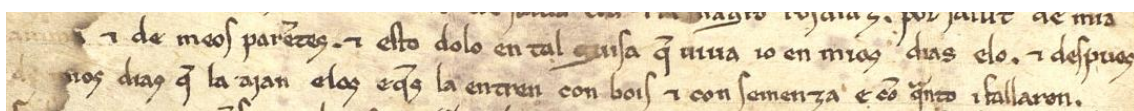 por salut de mia
anima ⁊ de meos parẽtes. ⁊ esto dolo en tal guisa q̃ uiua io en mios dias elo. ⁊ despues
de mios dias q̃ la aian elos eq̃s la entren con bois ⁊ con semenza e cõ q̃nto i fallaren.